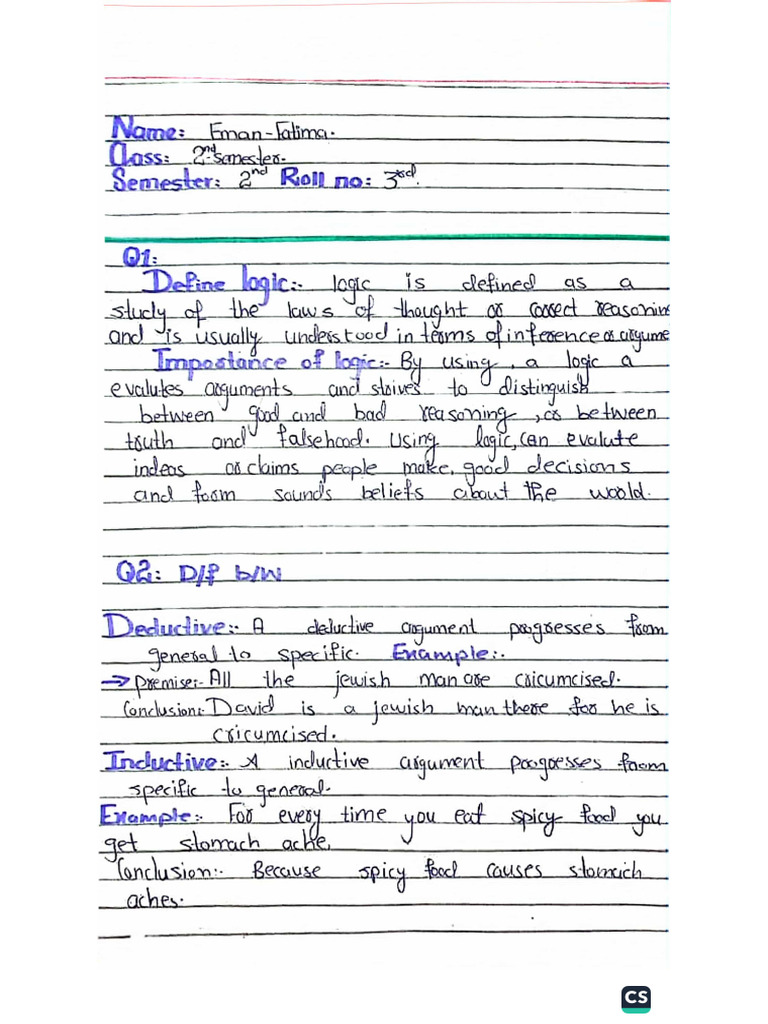 Name: Eman-Fatima.
Class: 2nd Semester.
Semester: 2nd Roll no: 3rd.
Q1:
Define logic:- logic is defined as a
study of the laws of thought or correct reasonin
and is usually understood in terms of inference or argume
Importance of logic:- By using, a logic a
evalutes arguments and strives to distinguish
between good and bad reasoning, or between
truth and falsehood. Using logic, can evalute
indeas or claims people make, good decisions
and form sounds beliefs about the world.
Q2: D/f b/w
Deductive:- A deductive argument progresses from
general to specific. Example:-
→ Premise:- All the jewish man are cricumcised.
Conclusion:- David is a jewish man there for he is
cricumcised.
Inductive:- A inductive argument progresses from
specific to general.
Example:- For every time you eat spicy food you
get stomach ache,
Conclusion:- Because spicy food causes stomach
aches.
CS